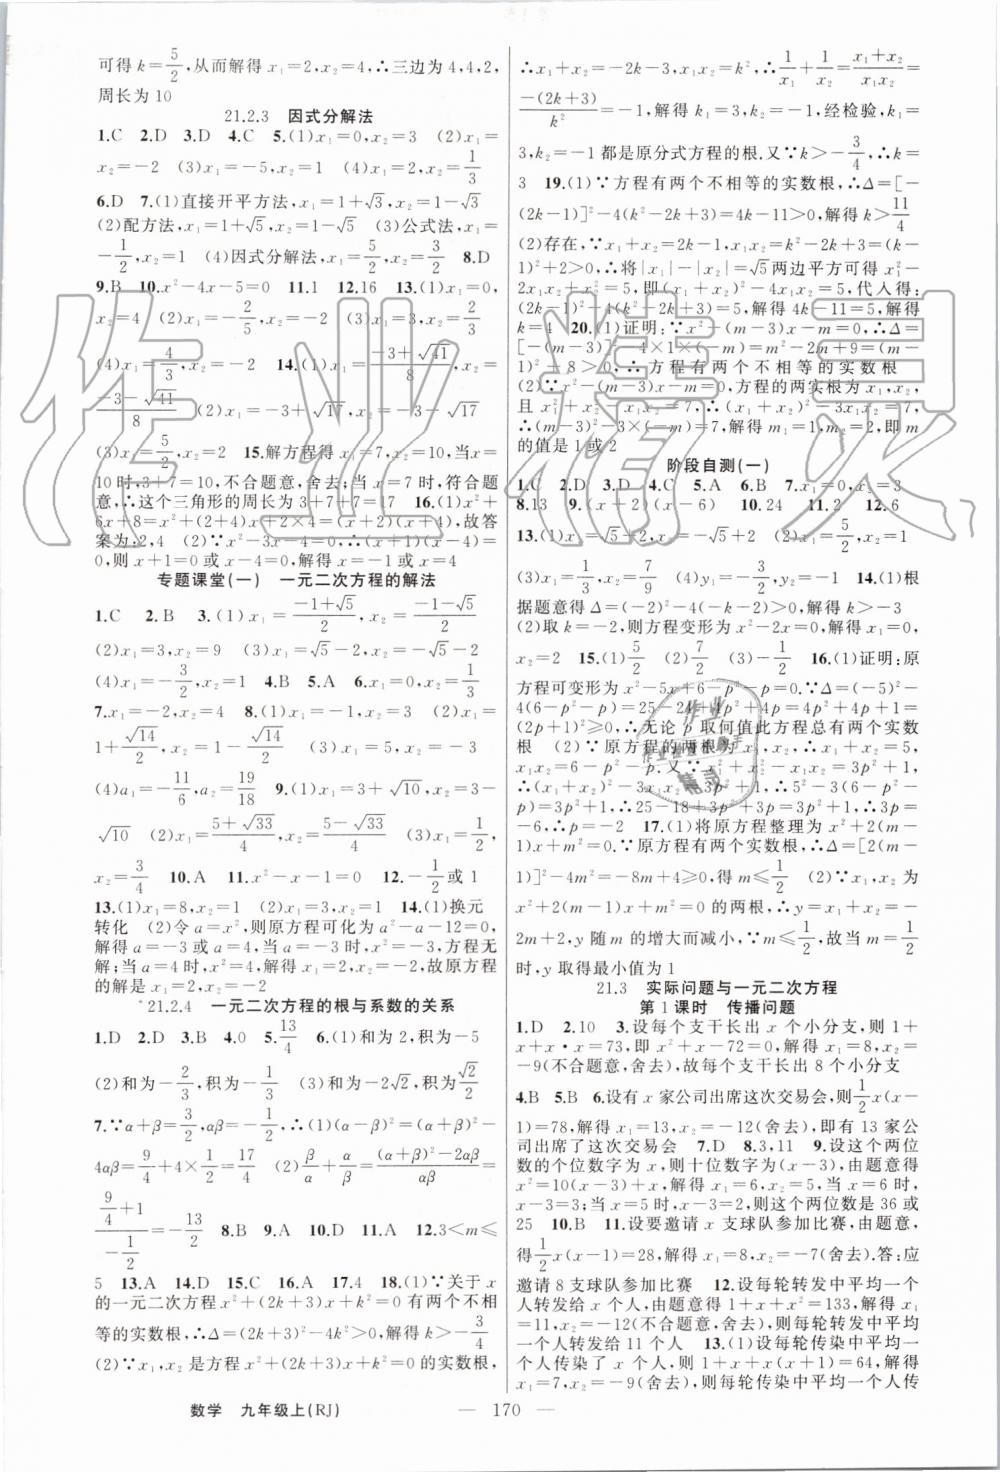 可得k=5/2,从而解得x₁=2,x₂=4,∴三边为4,4,2,
周长为10
21.2.3 因式分解法
1.C 2.D 3.D 4.C 5.(1)x₁=0,x₂=3 (2)x₁=
x₂=-2 (3)x₁=-5,x₂=1 (4)x₁=2,x₂=1/3
6.D 7.(1)直接开平方法,x₁=1+√3,x₂=1-√3
(2)配方法,x₁=1+√5,x₂=1-√5 (3)公式法,x₁=
-1/2,x₂=1 (4)因式分解法,x₁=5/2,x₂=3/2 8.D
9.B 10.x²-4x-5=0 11.1 12.16 13.(1)x₁=0,
x₂=4 (2)x₁=-2/5,x₂=2/5 (3)x₁=
(4)x₁=4/3,x₂=-2 14.(1)x₁=(-3+√41)/8,x₂=
(-3-√41)/8 (2)x₁=-3+√17,x₂=-3-√17
(3)x₁=5/2,x₂=2 15.解方程得x₁=7,x₂=10,当x=
10时,3+7=10,不合题意,舍去;当x=7时,符合题
意,∴这个三角形的周长为3+7+7=17 16.(1)x²+
6x+8=x²+(2+4)x+2×4=(x+2)(x+4),故答
案为:2,4 (2)∵x²-3x-4=0,∴(x+1)(x-4)=
0,则x+1=0或x-4=0,解得x=-1或x=4
专题课堂(一) 一元二次方程的解法
1.C 2.B 3.(1)x₁=(-1+√5)/2,x₂=(-1-√5)/2
(2)x₁=3,x₂=9 (3)x₁=√5-2,x₂=-√5-2
(4)x₁=-7,x₂=1 4.B 5.A 6.x₁=0,x₂=1
7.x₁=-2,x₂=4 8.(1)x₁=-1,x₂=3 (2)x₁=
1+√14/2,x₂=1-√14/2 (3)x₁=-2,x₂=-3
(4)a₁=-11/6,a₂=19/18 9.(1)x₁=3+√10,x₂=3-
√10 (2)x₁=(5+√33)/4,x₂=(5-√33)/4 (3)x₁=1/2,
x₂=3/4 10.A 11.x²-x-1=0 12.-1/2或1
13.(1)x₁=8,x₂=1 (2)x₁=3,x₂=1 14.(1)换元
转化 (2)令a=x²,则原方程可化为a²-a-12=0,
解得a=-3或a=4,当a=-3时,x²=-3,方程无
解;当a=4时,x²=4,解得x₁=2,x₂=-2,故原方程
的解为x₁=2,x₂=-2
*21.2.4 一元二次方程的根与系数的关系
1.D 2.D 3.B 4.0 5.13/4 6.(1)和为2,积为-5
(2)和为-2/3,积为-1/3 (3)和为-2√2,积为√2/2
7.∵α+β=3/2,αβ=-1/2,∴(1)(α-β)²=(α+β)²-
4αβ=9/4+4×1/2=17/4 (2)β/α+α/β=((α+β)²-2αβ)/αβ=
(9/4+1)/(-1/2)=-13/2 8.B 9.A 10.D 11.A 12.3<m≤
5 13.A 14.D 15.C 16.A 17.4 18.(1)∵关于x
的一元二次方程x²+(2k+3)x+k²=0有两个不相
等的实数根,∴(2k+3)²-4k²>0,解得k>-3/4
(2)∵x₁,x₂是方程x²+(2k+3)x+k²=0的实数根,
∴x₁+x₂=-2k-3,x₁x₂=k²,∴1/x₁+1/x₂=(x₁+x₂)/x₁x₂=
-(2k+3)/k²=-1,解得k₁=3,k₂=-1,经检验,k₁=
3,k₂=-1都是原分式方程的根.又∵k>-3/4,∴k=
3 19.(1)∵方程有两个不相等的实数根,∴Δ=[-
(2k-1)]²-4(k²-2k+3)=4k-11>0,解得k>11/4
(2)存在,∵x₁+x₂=2k-1,x₁x₂=k²-2k+3=(k-
1)²+2>0,∴将|x₁|-|x₂|=√5两边平方可得x₁²-
2x₁x₂+x₂²=5,即(x₁+x₂)²-4x₁x₂=5,代入得:
(2k-1)²-4(k²-2k+3)=5,解得4k-11=5,解得
k=4 20.(1)证明:∵x²-(m-3)x-m=0,∴Δ=
[-(m-3)]²-4×1×(-m)=m²-2m+9=(m-
1)²+8>0,∴方程有两个不相等的实数根
(2)∵x²-(m-3)x-m=0,方程的两实根为x₁,x₂,
且x₁²+x₂²-x₁x₂=7,∴(x₁+x₂)²-3x₁x₂=7,
∴(m-3)²-3×(-m)=7,解得m₁=1,m₂=2,即m
的值是1或2
阶段自测(一)
1.C 2.D 3.D 4.C 5.A 6.B 7.x₁=0,x₂=3
8.13 9.(x+2)(x-6) 10.24 11.2 12.6
13.(1)x₁=√5+2,x₂=-√5+2 (2)x₁=5/2,x₂=1
(3)x₁=1/3,x₂=7/9 (4)y₁=-1/2,y₂=-3/2 14.(1)根
据题意得Δ=(-2)²-4(-k-2)>0,解得k>-3
(2)取k=-2,则方程变形为x²-2x=0,解得x₁=0,
x₂=2 15.(1)5/2 (2)7/2 (3)-1/2 16.(1)证明:原
方程可变形为x²-5x+6-p²-p=0.∵Δ=(-5)²-
4(6-p²-p)=25-24+4p²+4p=4p²+4p+1=
(2p+1)²≥0,∴无论p取何值此方程总有两个实数
根 (2)∵原方程的两根为x₁,x₂,∴x₁+x₂=5,
x₁x₂=6-p²-p.又∵x₁²+x₂²-x₁x₂=3p²+1,
∴(x₁+x₂)²-3x₁x₂=3p²+1,∴5²-3(6-p²-
p)=3p²+1,∴25-18+3p²+3p=3p²+1,∴3p=
-6,∴p=-2 17.(1)将原方程整理为x²+2(m-
1)x+m²=0.∵原方程有两个实数根,∴Δ=[2(m-
1)]²-4m²=-8m+4≥0,得m≤1/2 (2)∵x₁,x₂为
x²+2(m-1)x+m²=0的两根,∴y=x₁+x₂=-
2m+2,y随m的增大而减小,∵m≤1/2,故当m=1/2
时,y取得最小值为1
21.3 实际问题与一元二次方程
第1课时 传播问题
1.D 2.10 3.设每个支干长出x个小分支,则1+
x+x·x=73,即x²+x-72=0,解得x₁=8,x₂=
-9(不合题意,舍去),故每个支干长出8个小分支
4.B 5.B 6.设有x家公司出席这次交易会,则1/2x(x-
1)=78,解得x₁=13,x₂=-12(舍去),即有13家公
司出席了这次交易会 7.D 8.3,11 9.设这个两位
数的个位数字为x,则十位数字为(x-3),由题意得
x²=10(x-3)+x,解得x₁=6,x₂=5,当x=6时,
x-3=3;当x=5时,x-3=2,则这个两位数是36或
25 10.B 11.设要邀请x支球队参加比赛,由题意,
得1/2x(x-1)=28,解得x₁=8,x₂=-7(舍去).答:应
邀请8支球队参加比赛 12.设每轮转发中平均一个
人转发给x个人,由题意得1+x+x²=133,解得x₁
=11,x₂=-12(不合题意,舍去),则每轮转发中平均
一个人转发给11个人 13.(1)设每轮传染中平均一
个人传染了x个人,1+x+x(x+1)=64,解得x₁=
7,x₂=-9(舍去),则每轮传染中平均一个人传
数学 九年级上(RJ)
— 170 —